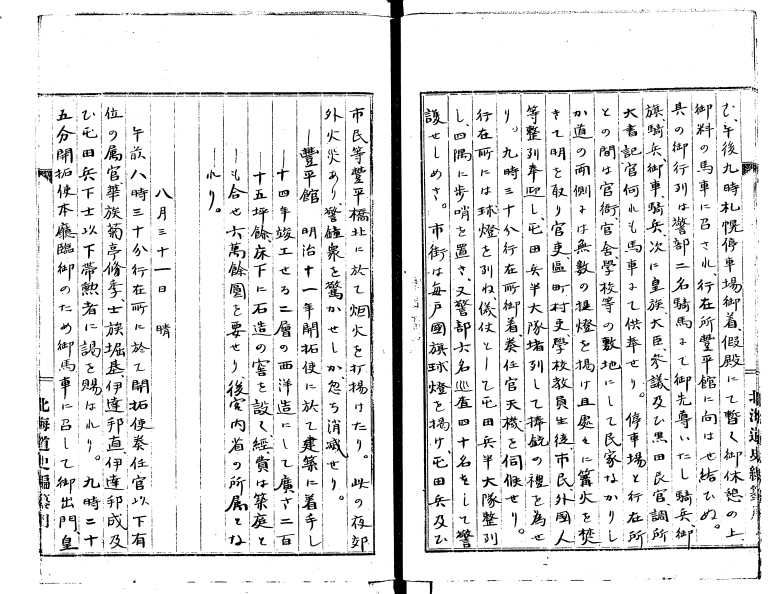 む、午後九時札幌停車場御着、假殿にて暫く御休憩の上
御料の馬車に召され、行在所豐平館に向はせ給ひぬ。
具の御行列は警部二名騎馬にて御先導いたし騎兵、御
旗騎兵、御車、騎兵、次に皇族、大臣参議及ひ黒田長官調所
大書記官何れも馬車にて供奉せり。停車場と行在所
との間は官衙、官舎、學校等の敷地にして民家なかりし
か道の兩側には無數の提燈を掲け且處々に篝火を焚
きて明を取り官吏、區町村吏學校教員生徒市民外國人
等整列奉迎し、屯田兵半大隊堵列して捧銃の禮を為せ
り。九時三十分行在所御着奏任官天機を伺候せり。
行在所には球燈を列ね、儀仗として屯田兵半大隊整列
し、四隅に歩哨を置き、又警部六名巡査四十名をして警
護せしめき。市街は毎戸國旗球燈を掲け、屯田兵及ひ
市民等豐平橋北に於て烟火を打揚けたり。此の夜郊
外火災あり、警鐘衆を驚かせしか忽ち消滅せり。
―豐平館 明治十一年開拓使に於て建築に着手し
―十四年竣工せる二層の西洋造にして廣さ二百
―十五坪餘、床下に石造の窖を設く、經費は築庭と
―も合せ六萬餘圓を要せり後宮内省の所属とな
―れり。
八月三十一日 晴
午前八時三十分行在所に於て開拓使奏任官以下有
位の属官華族菊亭脩季、士族堀基、伊達邦直、伊達邦成及
ひ屯田兵下士以下帯勲者に謁を賜はれり。九時二十
五分開拓使本廳臨御のため御馬車に召して御出門、皇
北海道史編纂用